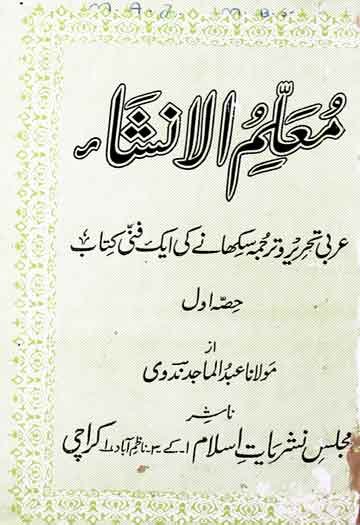 M. A. J. M. B. S.
مُعَلِّمُ الانشاء
عربی تحریر و ترجمہ سکھانے کی ایک فنی کتاب
حصہ اول
از
مولانا عبدُ الماجد ندوی
ناشر
مجلس نشریاتِ اسلام ۱۔کے۔۳۔ناظم آباد ۱ کراچی